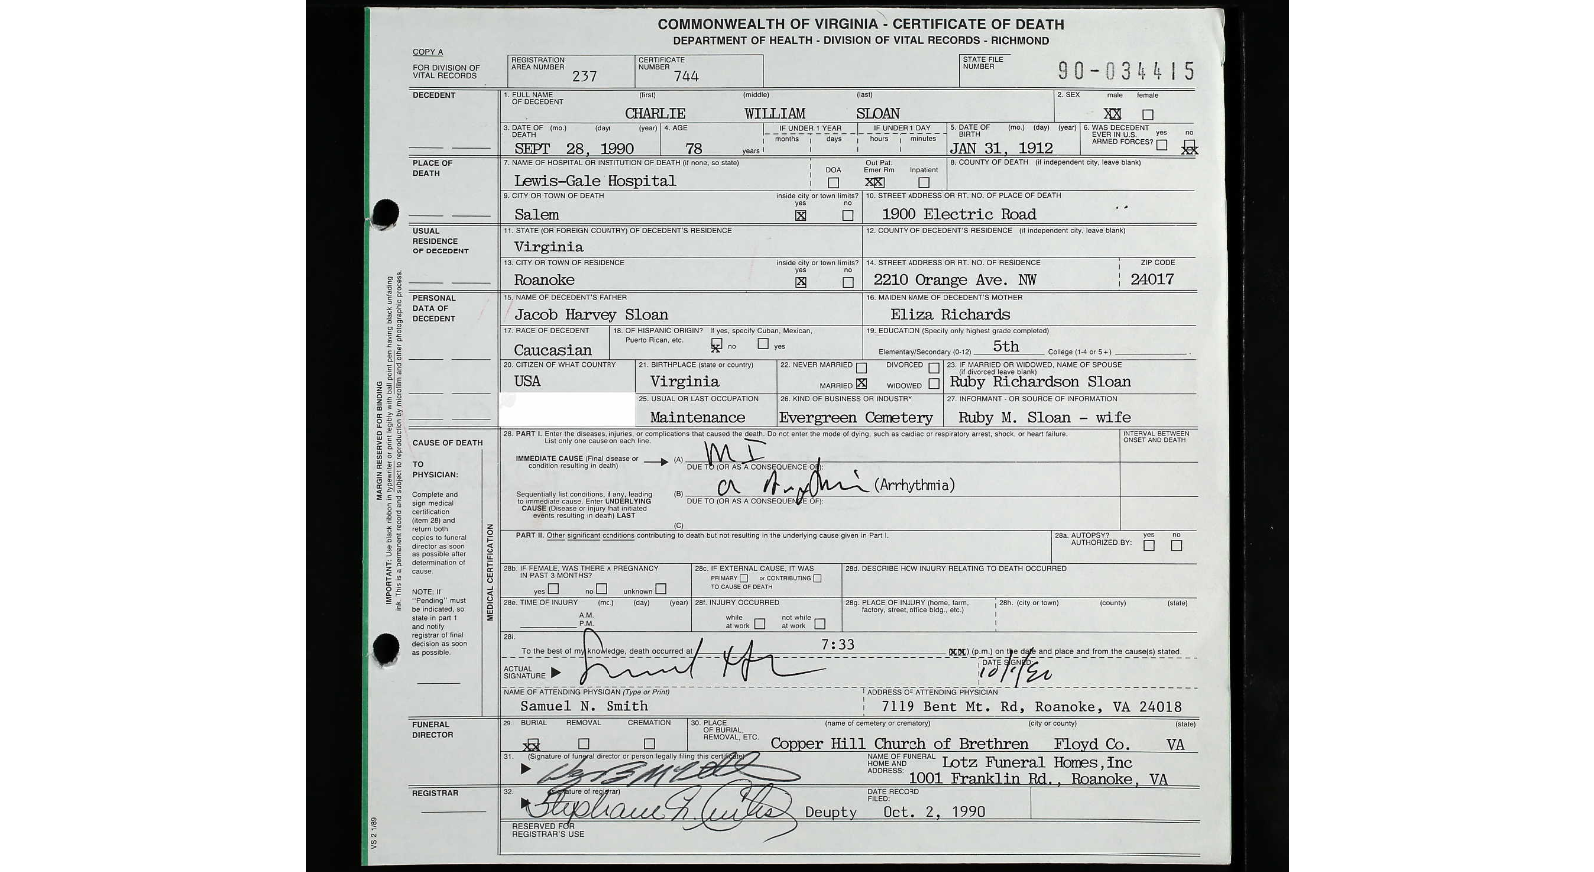 COMMONWEALTH OF VIRGINIA - CERTIFICATE OF DEATH
DEPARTMENT OF HEALTH - DIVISION OF VITAL RECORDS - RICHMOND
COPY A
FOR DIVISION OF VITAL RECORDS
REGISTRATION AREA NUMBER 237
CERTIFICATE NUMBER 744
STATE FILE NUMBER 90-034415
DECEDENT
1. FULL NAME OF DECEDENT (first) (middle) (last)
CHARLIE WILLIAM SLOAN
2. SEX male female
XX
3. DATE OF DEATH (mo.) (day) (year)
SEPT 28, 1990
4. AGE
78 years
IF UNDER 1 YEAR months days
IF UNDER 1 DAY hours minutes
5. DATE OF BIRTH (mo.) (day) (year)
JAN 31, 1912
6. WAS DECEDENT EVER IN U.S. ARMED FORCES? yes no
XX
PLACE OF DEATH
7. NAME OF HOSPITAL OR INSTITUTION OF DEATH (if none, so state)
Lewis-Gale Hospital
DOA
Out Pat. Emer Rm
XX
Inpatient
8. COUNTY OF DEATH (if independent city, leave blank)
9. CITY OR TOWN OF DEATH
Salem
inside city or town limits? yes no
X
10. STREET ADDRESS OR RT. NO. OF PLACE OF DEATH
1900 Electric Road
USUAL RESIDENCE OF DECEDENT
11. STATE (OR FOREIGN COUNTRY) OF DECEDENT'S RESIDENCE
Virginia
12. COUNTY OF DECEDENT'S RESIDENCE (if independent city, leave blank)
13. CITY OR TOWN OF RESIDENCE
Roanoke
inside city or town limits? yes no
X
14. STREET ADDRESS OR RT. NO. OF RESIDENCE
2210 Orange Ave. NW
ZIP CODE
24017
PERSONAL DATA OF DECEDENT
15. NAME OF DECEDENT'S FATHER
Jacob Harvey Sloan
16. MAIDEN NAME OF DECEDENT'S MOTHER
Eliza Richards
17. RACE OF DECEDENT
Caucasian
18. OF HISPANIC ORIGIN? If yes, specify Cuban, Mexican, Puerto Rican, etc.
X no yes
19. EDUCATION (Specify only highest grade completed)
Elementary/Secondary (0-12) 5th College (1-4 or 5+)
20. CITIZEN OF WHAT COUNTRY
USA
21. BIRTHPLACE (state or country)
Virginia
22. NEVER MARRIED DIVORCED
MARRIED X WIDOWED
23. IF MARRIED OR WIDOWED, NAME OF SPOUSE (if divorced leave blank)
Ruby Richardson Sloan
25. USUAL OR LAST OCCUPATION
Maintenance
26. KIND OF BUSINESS OR INDUSTRY
Evergreen Cemetery
27. INFORMANT - OR SOURCE OF INFORMATION
Ruby M. Sloan - wife
CAUSE OF DEATH
TO PHYSICIAN:
Complete and sign medical certification (item 28) and return both copies to funeral director as soon as possible after determination of cause.
NOTE: If "Pending" must be indicated, so state in part 1 and notify registrar of final decision as soon as possible.
MARGIN RESERVED FOR BINDING
IMPORTANT: Use black ribbon in typewriter or print legibly with ball point pen having black unfading
ink. This is a permanent record and subject to reproduction by microfilm and other photographic process.
MEDICAL CERTIFICATION
28. PART I. Enter the diseases, injuries, or complications that caused the death. Do not enter the mode of dying, such as cardiac or respiratory arrest, shock, or heart failure.
List only one cause on each line.
INTERVAL BETWEEN ONSET AND DEATH
IMMEDIATE CAUSE (Final disease or condition resulting in death)
(A) MI
DUE TO (OR AS A CONSEQUENCE OF):
Sequentially list conditions, if any, leading to immediate cause. Enter UNDERLYING CAUSE (Disease or injury that initiated events resulting in death) LAST
(B) (Arrhythmia)
DUE TO (OR AS A CONSEQUENCE OF):
(C)
PART II. Other significant conditions contributing to death but not resulting in the underlying cause given in Part I.
28a. AUTOPSY? AUTHORIZED BY: yes no
28b. IF FEMALE, WAS THERE A PREGNANCY IN PAST 3 MONTHS?
yes no unknown
28c. IF EXTERNAL CAUSE, IT WAS
PRIMARY or CONTRIBUTING
TO CAUSE OF DEATH
28d. DESCRIBE HOW INJURY RELATING TO DEATH OCCURRED
28e. TIME OF INJURY (mo.) (day) (year)
A.M.
P.M.
28f. INJURY OCCURRED
while at work not while at work
28g. PLACE OF INJURY (home, farm, factory, street, office bldg., etc.)
28h. (city or town) (county) (state)
28i.
To the best of my knowledge, death occurred at 7:33 (p.m.) on the date and place and from the cause(s) stated.
ACTUAL SIGNATURE
DATE SIGNED
10/1/90
NAME OF ATTENDING PHYSICIAN (Type or Print)
Samuel N. Smith
ADDRESS OF ATTENDING PHYSICIAN
7119 Bent Mt. Rd, Roanoke, VA 24018
FUNERAL DIRECTOR
29. BURIAL REMOVAL CREMATION
XX
30. PLACE OF BURIAL, REMOVAL, ETC. (name of cemetery or crematory) (city or county) (state)
Copper Hill Church of Brethren Floyd Co. VA
31. (Signature of funeral director or person legally filing this certificate)
NAME OF FUNERAL HOME AND ADDRESS:
Lotz Funeral Homes,Inc
1001 Franklin Rd., Roanoke, VA
REGISTRAR
32. (Signature of registrar)
Deupty
DATE RECORD FILED:
Oct. 2, 1990
RESERVED FOR REGISTRAR'S USE
VS 2 1/89